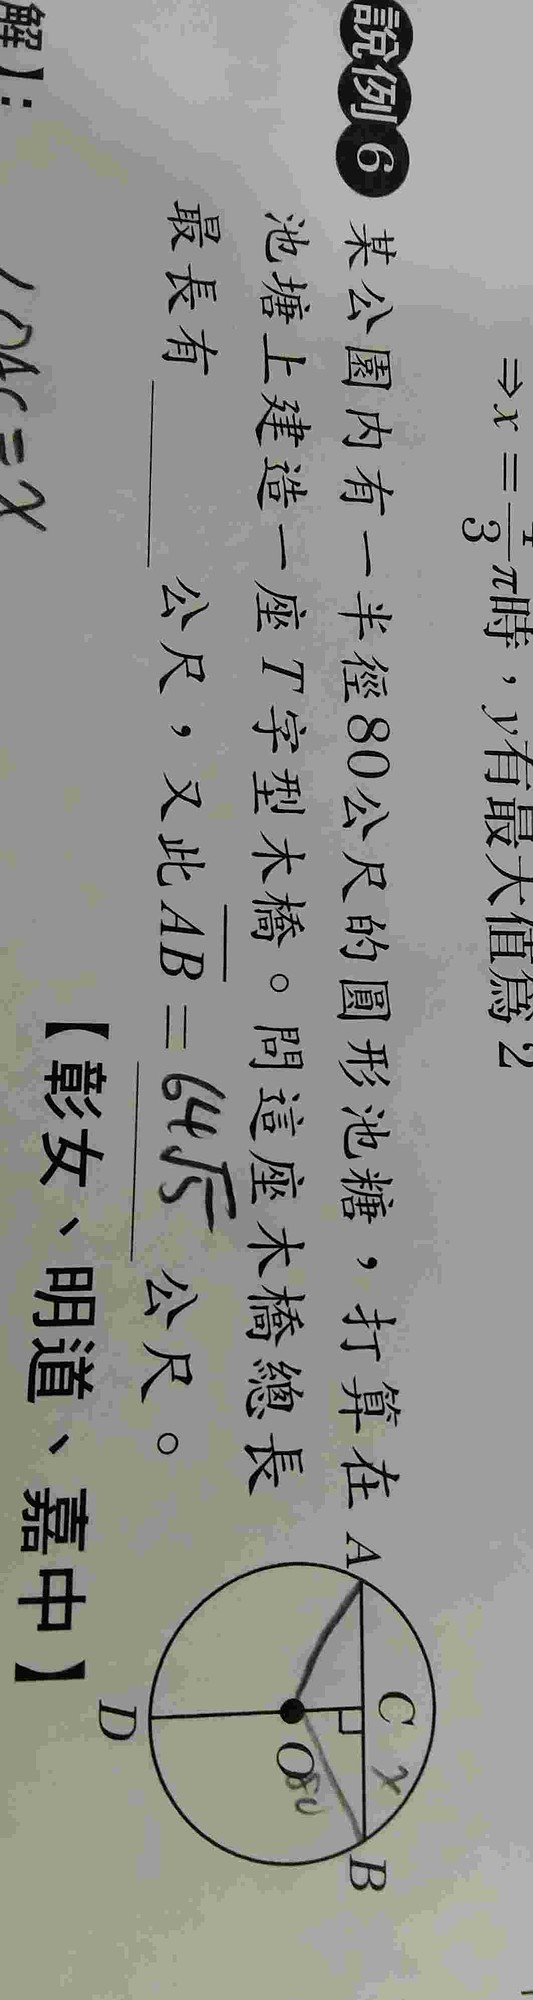 ⇒x = 4/3 π時，y有最大值為 2
說例 6 某公園內有一半徑80公尺的圓形池糖，打算在
池塘上建造一座T字型木橋。問這座木橋總長
最長有＿＿＿公尺，又此AB = 64√5 公尺。
【彰女、明道、嘉中】
A
C
x
B
O
80
D
解】：
∠OAC = x